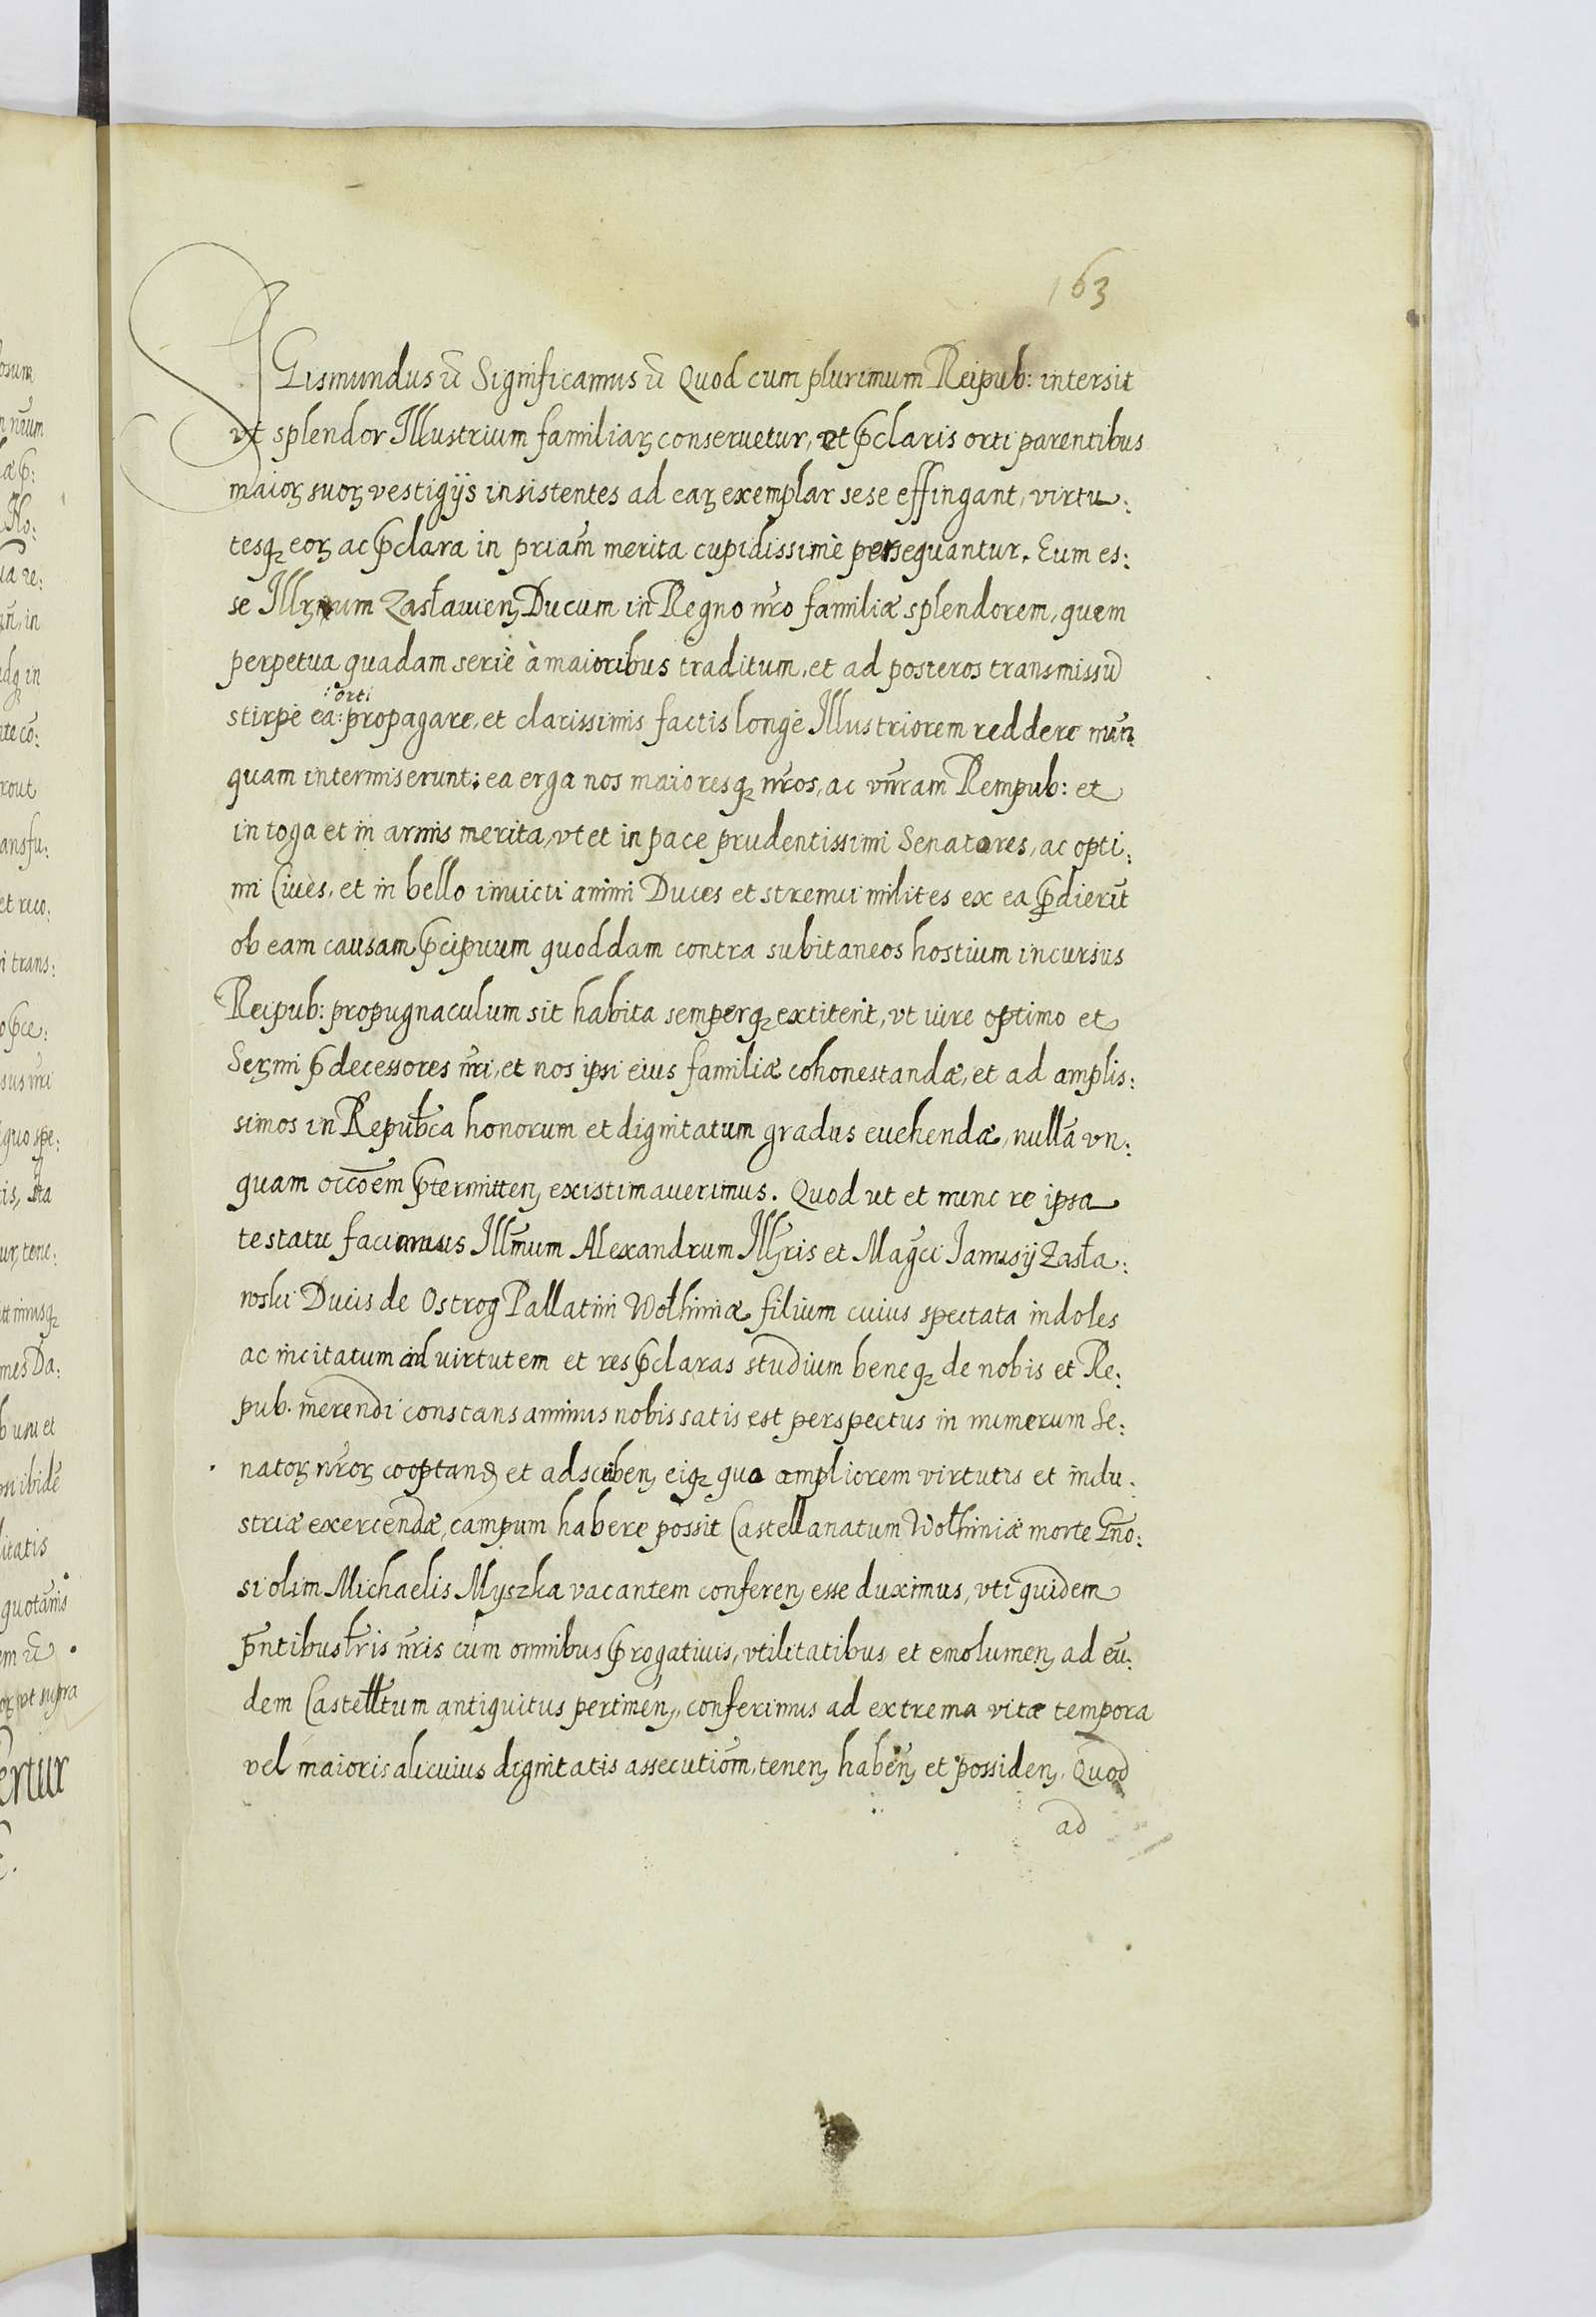 163
SIGismundus etc Significamus etc Quod cum plurimum Reipub: intersit
vt splendor Illustrium familiaꝝ conseruetur, et p̃claris orti parentibus
maioꝝ suoꝝ vestigijs insistentes ad eaꝝ exemplar sese effingant, virtu:
tesqꝫ eoꝝ ac p̃clara in pria᷈m merita cupidissimè persequantur. Eum es:
se Zasławien Ducum in Regno nr̃o familiæ splendorem, quem
perpetua quadam seriè à maioribus traditum, et ad posteros transmissũ
:orti
stirpe ea: propagare, et clarissimis factis longè Illustriorem reddere nun̄
quam intermiserunt: ea erga nos maioresqꝫ nr̃os, ac vn̄ram Rempub: et
in toga et in armis merita, vt et in pace prudentissimi Senatores, ac opti:
mi Ciues, et in bello inuicti animi Duces et strenui milites ex ea p̃dierũt
ob eam causam p̃cipuum quoddam contra subitaneos hostium incursus
Reipub: propugnaculum sit habita semperqꝫ extiterit, vt iure optimo et
Seꝝmi p̃decessores nr̃i, et nos ipsi eius familiæ cohonestandæ, et ad amplis:
simos in Republca honorum et dignitatum gradus euehendæ, nullã vn:
quam occõem p̃termitten existimauerimus. Quod ut et nunc re ipsa
testatũ faciamus Illm̃um Alexandrum Illr̃is et Mag̃ci Janusij Zasła:
wski Ducis de Ostrog Pallatini Wołhiniæ filium cuius spectata indoles
ac incitatum ad uirtutem et res p̃claras studium beneqꝫ de nobis et Re:
pub. merendi constans animus nobis satis est perspectus in numerum Se:
natoꝝ nr̃oꝝ cooptand et adsciben eiqꝫ quo ampliorem virtutis et indu:
striæ exercendæ campum habere possit Castellanatum Wołhiniæ morte Gñ̃o:
si olim Michaelis Myszka vacantem conferen esse duximus, vti quidem
p̃ntibus lr̃is nr̃is cum omnibus p̃rogatiuis, vtilitatibus et emolumen ad eũ:
dem Castelltum antiquitus pertinen, conferimus ad extrema vitæ tempora
vel maioris alicuius dignitatis assecutiõm, tenen, haben, et possiden. Quod
ad